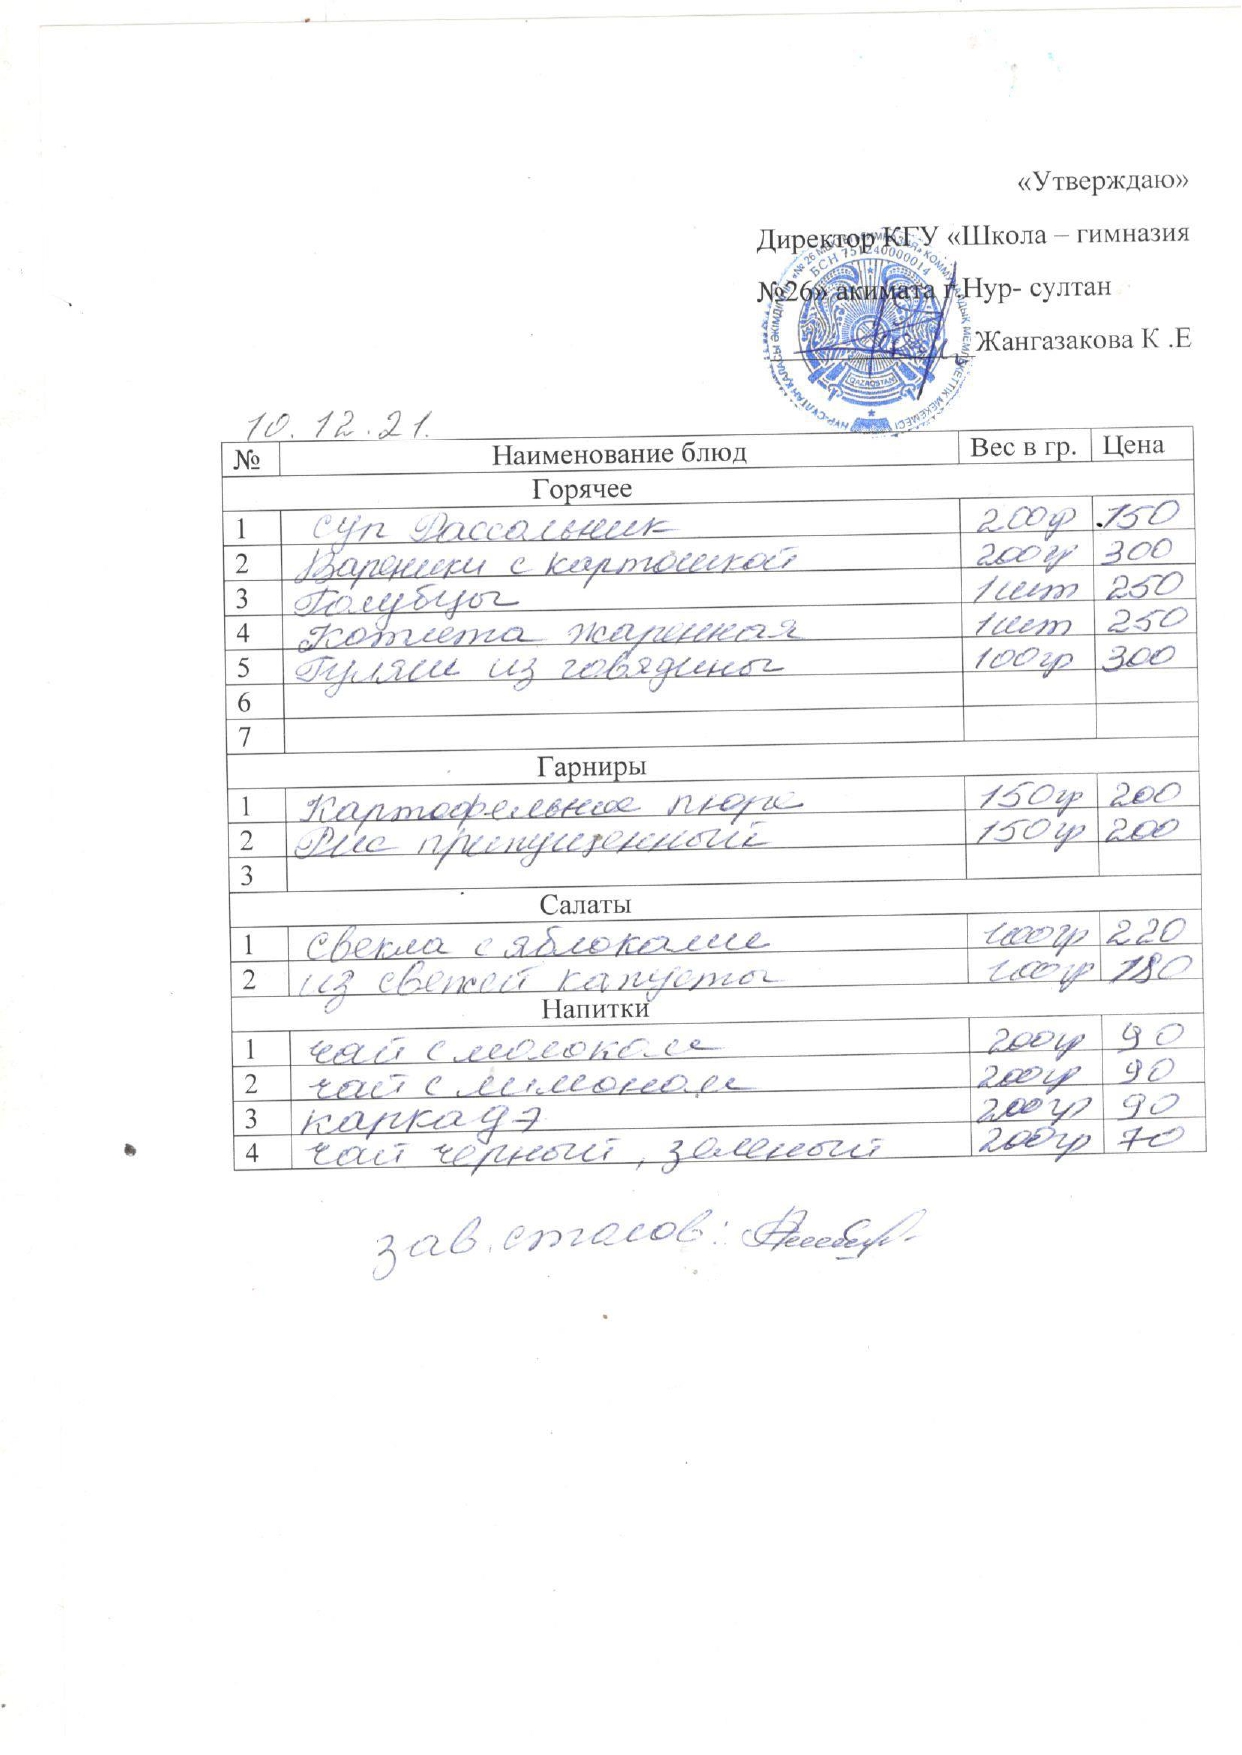 «Утверждаю»
Директор КГУ «Школа – гимназия
№26» акимата г.Нур- султан
Жангазакова К .Е
БСН 751240000014
QAZAQSTAN
10.12.21.
№ Наименование блюд Вес в гр. Цена
Горячее
1 суп Рассольник 200гр 150
2 Вареники с картошкой 200гр 300
3 Голубцы 1шт 250
4 Котлета жаренная 1шт 250
5 Гуляш из говядины 100гр 300
6
7
Гарниры
1 Картофельное пюре 150гр 200
2 Рис припущенный 150гр 200
3
Салаты
1 Свекла с яблоками 100гр 220
2 из свежей капусты 100гр 180
Напитки
1 чай с молоком 200гр 90
2 чай с лимоном 200гр 90
3 каркадэ 200гр 90
4 чай черный, зеленый 200гр 70
зав. столов: